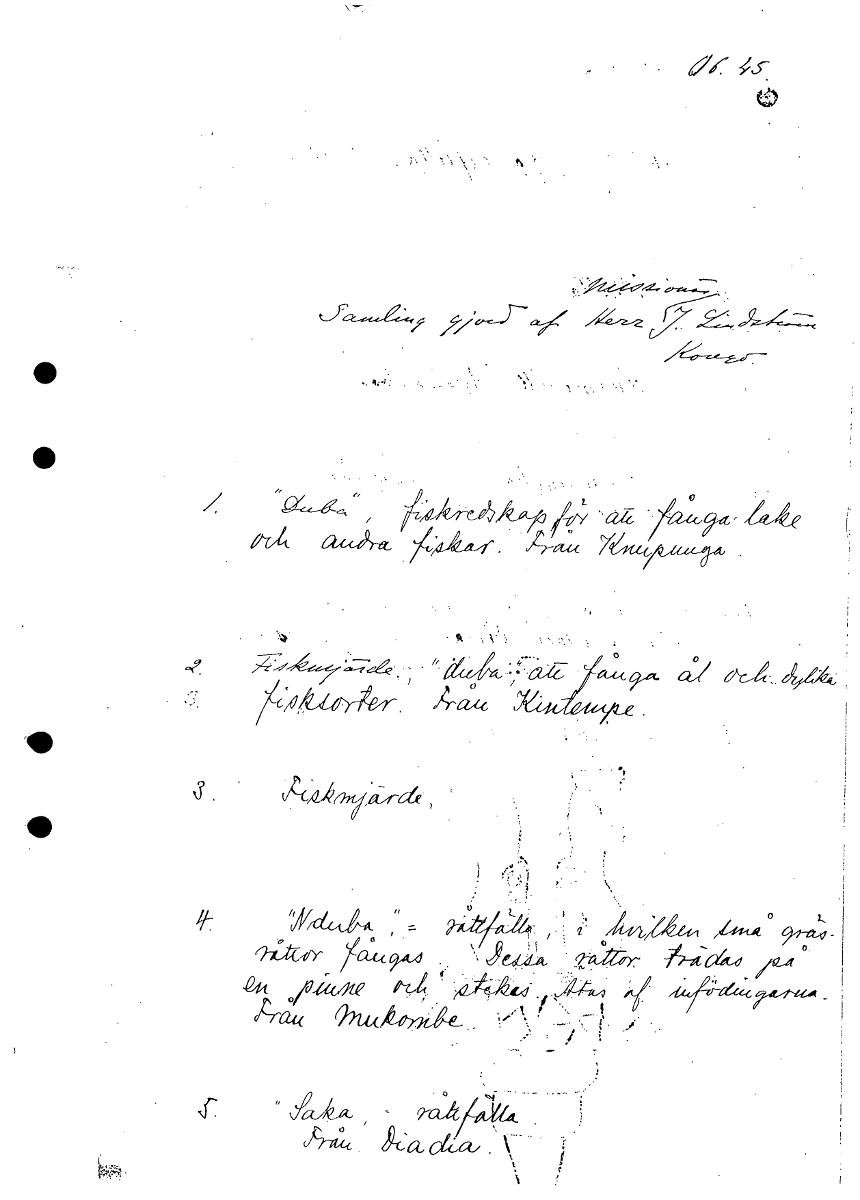 06. 45.
missionär
Samling gjord af Herr J. Lindström
Kongo.
1. "Duba", fiskredskap för att fånga lake
och andra fiskar. Från Knupunga.
2. Fiskmjärde, "duba", att fånga ål och dylika
fisksorter. Från Kintempe.
3. Fiskmjärde,
4. "Nduba", = råttfälla, i hvilken små gräs-
råttor fångas. Dessa råttor trädas på
en pinne och stekas, ätas af infödingarna.
Från Mukombe
5. "Saka, råttfälla
Från Diadia.